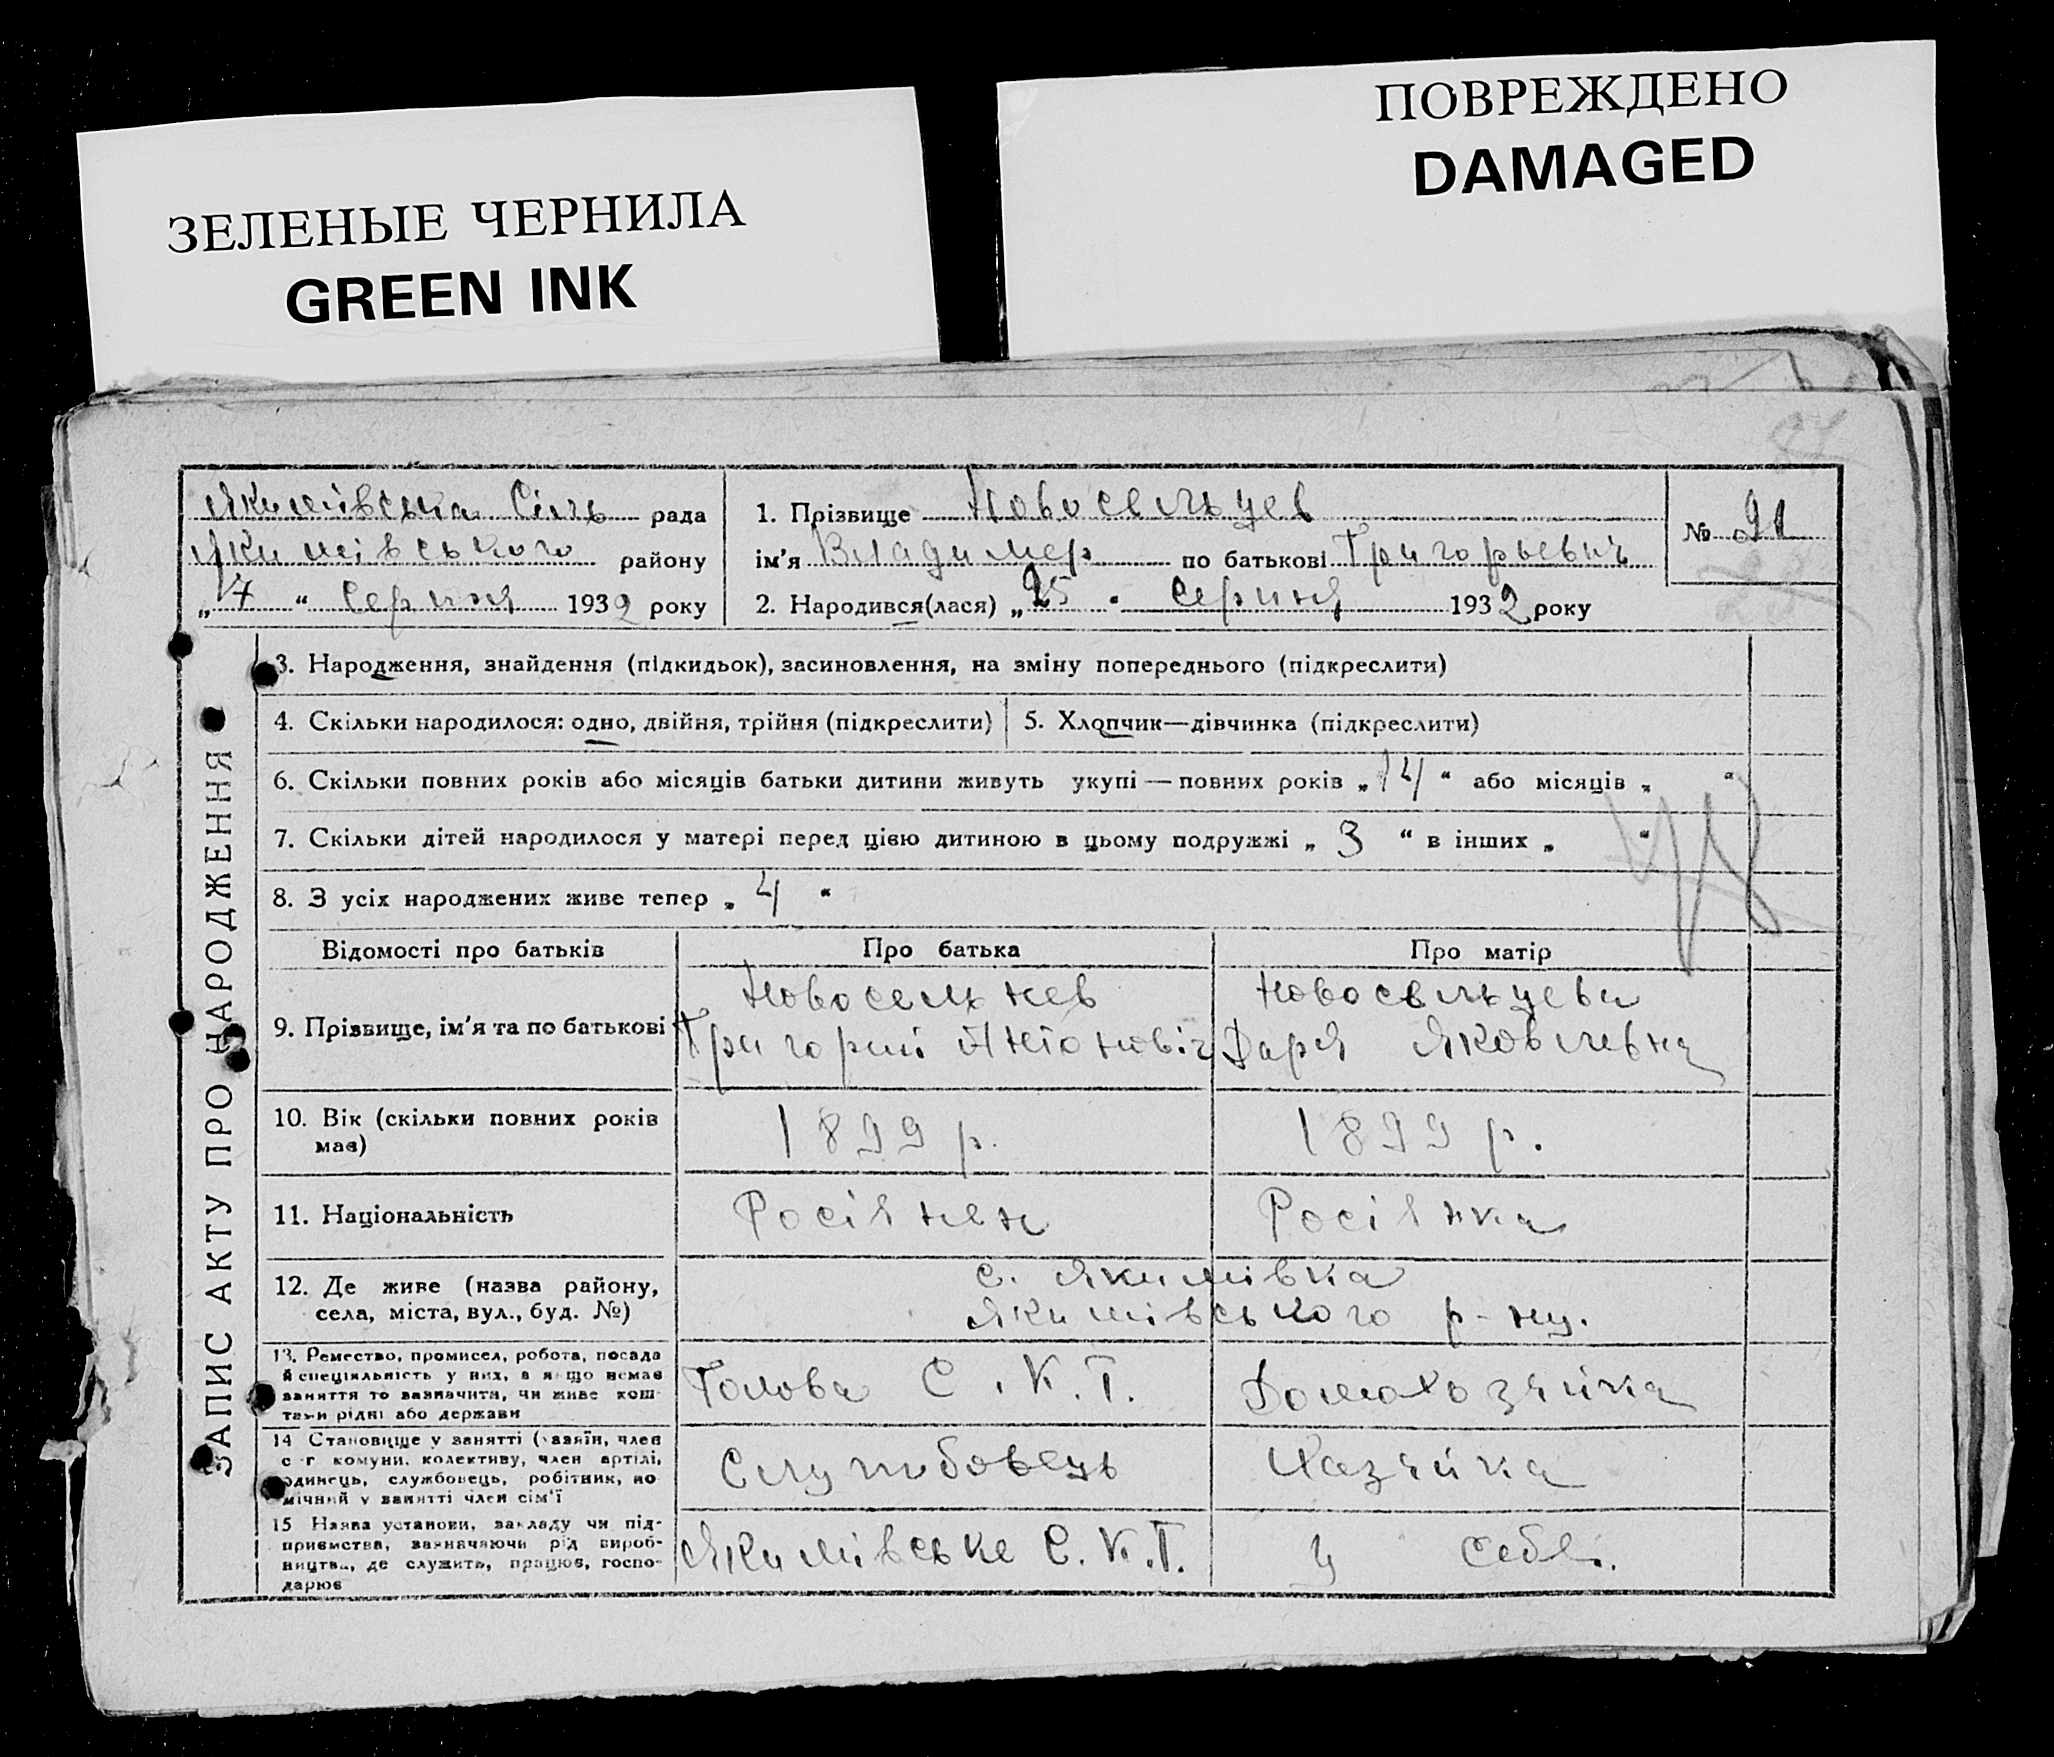 ЗЕЛЕНЫЕ ЧЕРНИЛА
GREEN INK
ПОВРЕЖДЕНО
DAMAGED
Якимівська Сіль рада
Якимівського району
„17“ Серпня 1932 року
1. Прізвище Новосельцев
ім’я Владимер по батькові Григорьевич
2. Народився(лася) „25“ Серпня 1932 року
№ 91
ЗАПИС АКТУ ПРО НАРОДЖЕННЯ
3. Народження, знайдення (підкидьок), засиновлення, на зміну попереднього (підкреслити)
4. Скільки народилося: одно, двійня, трійня (підкреслити)
5. Хлопчик—дівчинка (підкреслити)
6. Скільки повних років або місяців батьки дитини живуть укупі — повних років „14“ або місяців „ “
7. Скільки дітей народилося у матері перед цією дитиною в цьому подружжі „3“ в інших „ “
8. З усіх народжених живе тепер „4“
Відомості про батьків Про батька Про матір
9. Прізвище, ім’я та по батькові
Новосельцев
Григорий Антонович
Новосельцева
Даря Яковлевна
10. Вік (скільки повних років
має)
1899 р.
1899 р.
11. Національність
Росіянен
Росіянка
12. Де живе (назва району,
села, міста, вул., буд. №)
с. Якимівка
Якимівського р-ну.
13. Ремество, промисел, робота, посада
й спеціяльність у них, а якщо немає
заняття то зазначити, чи живе кош-
тами рідні або держави
Голова С.К.Т.
Домохозяйка
14 Становище у занятті (хазяїн, член
с-г комуни, колективу, член артілі,
одинець, службовець, робітник, по-
мічний у занятті член сім’ї
Службовець
Хазяйка
15 Назва установи, закладу чи під-
приємства, зазначаючи рід вироб-
ництва, де служить, працює, госпо-
дарює
Якимівське С.К.Т.
У себе.